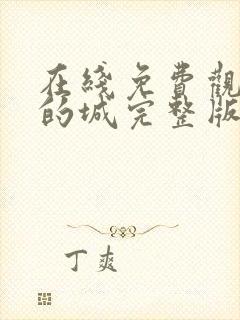 在綫免費觀
的城完整版
丁爽